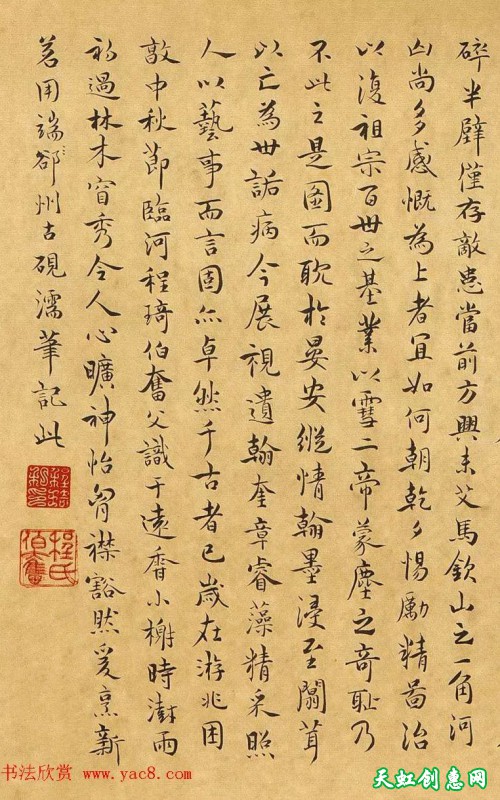 碎半壁僅存敵患當前方興未艾馬欽山之一角河
山尚多感慨為上者宜如何朝乾夕惕勵精啚治
以復祖宗百世之基業以雪二帝蒙塵之奇恥乃
不此之是圖而耽於晏安縱情翰墨浸至闒茸
以亡為世詬病今展視遺翰奎章睿藻精采照
人以藝事而言固亦卓然千古者已歲在游兆困
敦中秋節臨河程琦伯奮父識于遠香小榭時澍雨
初過林木窅秀令人心曠神怡胷襟豁然爰烹新
茗用端州古硯濡筆記此
程氏伯奮
书法欣赏 www.yac8.com
天虹创惠网